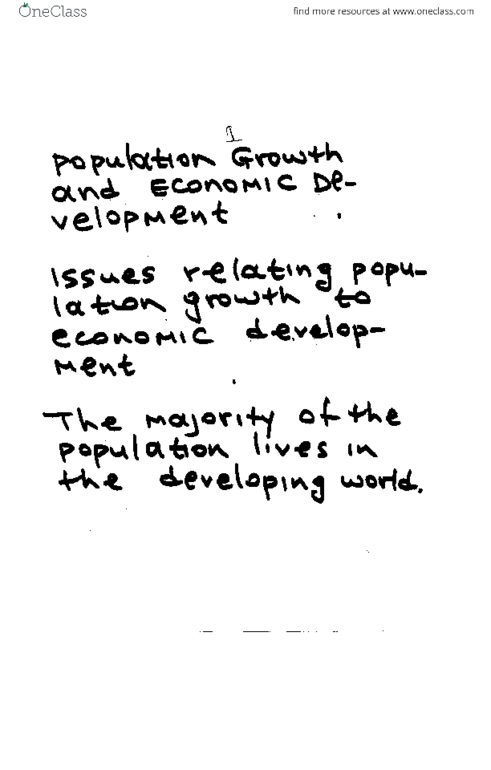 OneClass
find more resources at www.oneclass.com
1
Population Growth
and Economic De-
velopment
Issues relating popu-
lation growth to
economic develop-
ment
The majority of the
population lives in
the developing world.